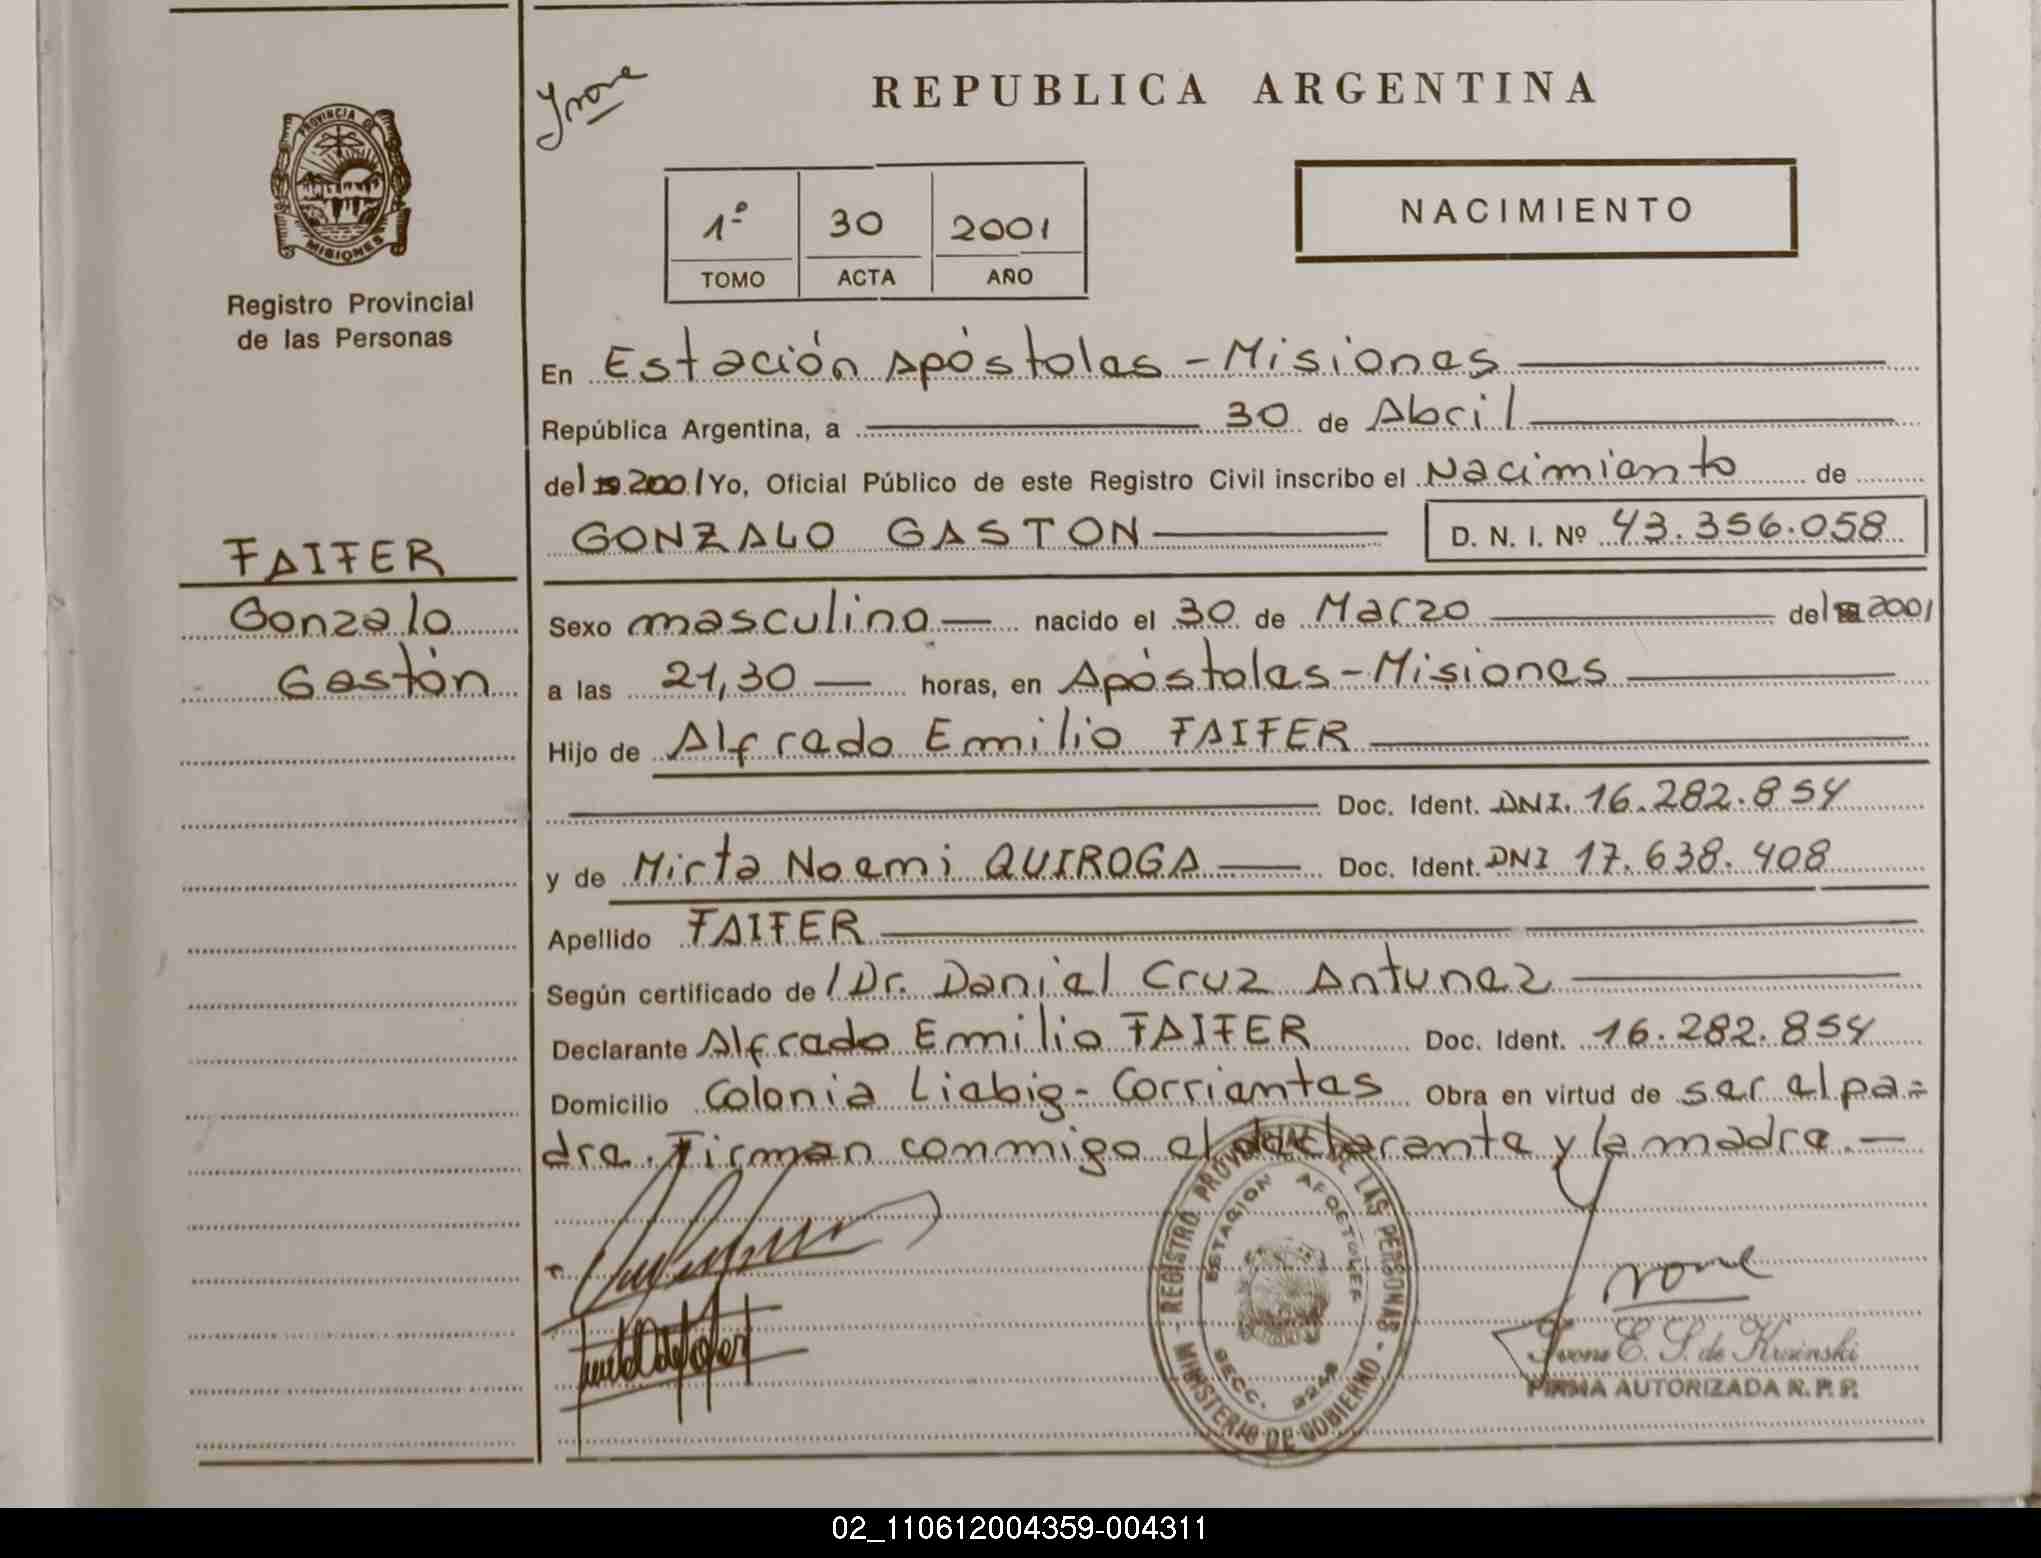 Ivone
REPUBLICA ARGENTINA
PROVINCIA DE
MISIONES
Registro Provincial
de las Personas
1º 30 2001
TOMO ACTA AÑO
NACIMIENTO
En Estación Apóstoles - Misiones
República Argentina, a 30 de Abril
del 19 2001 Yo, Oficial Público de este Registro Civil inscribo el Nacimiento de
GONZALO GASTON D. N. I. Nº 43.356.058
FAIFER
Gonzalo
Gastón
Sexo masculino nacido el 30 de Marzo del 2001
a las 21,30 horas, en Apóstoles - Misiones
Hijo de Alfredo Emilio FAIFER
Doc. Ident. DNI. 16.282.854
y de Mirta Noemi QUIROGA Doc. Ident. DNI 17.638.408
Apellido FAIFER
Según certificado de / Dr. Daniel Cruz Antunez
Declarante Alfredo Emilio FAIFER Doc. Ident. 16.282.854
Domicilio Colonia Liebig - Corrientes Obra en virtud de ser el pa=
dre. Firman conmigo el declarante y la madre.-
REGISTRO PROVINCIAL DE LAS PERSONAS - MINISTERIO DE GOBIERNO -
ESTACION APOSTOLES
SECC.
Ivone E. S. de Krsinski
FIRMA AUTORIZADA R. P. P.
02_110612004359-004311